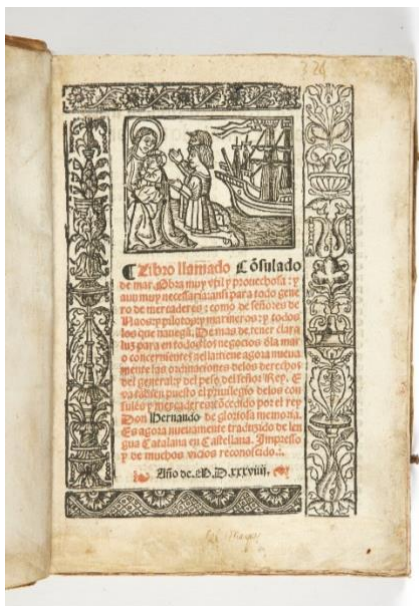 324
Libro llamado Cõsulado
de mar. Obra muy vtil y prouechosa: y
aun muy necessaria: ansi para todo gene
ro de mercaderes: como de señores de
Naos: y pilotos: y marineros: y todos
los que nauegã. De mas de tener clara
luz para en todos los negocios đla mar
o concernientes a ella: tiene agora nueua
mente las ordinaciones delos derechos
del general: y del peso del señor Rey. E
va tãbien puesto el priuilegio delos con
sules y mercaderes: cõcedido por el rey
Don Hernando de gloriosa memoria.
Es agora nueuamente traduzido de len
gua Catalana en Castellana. Impresso
y de muchos vicios reconoscido.
Año de. M.D.xxxviiij.